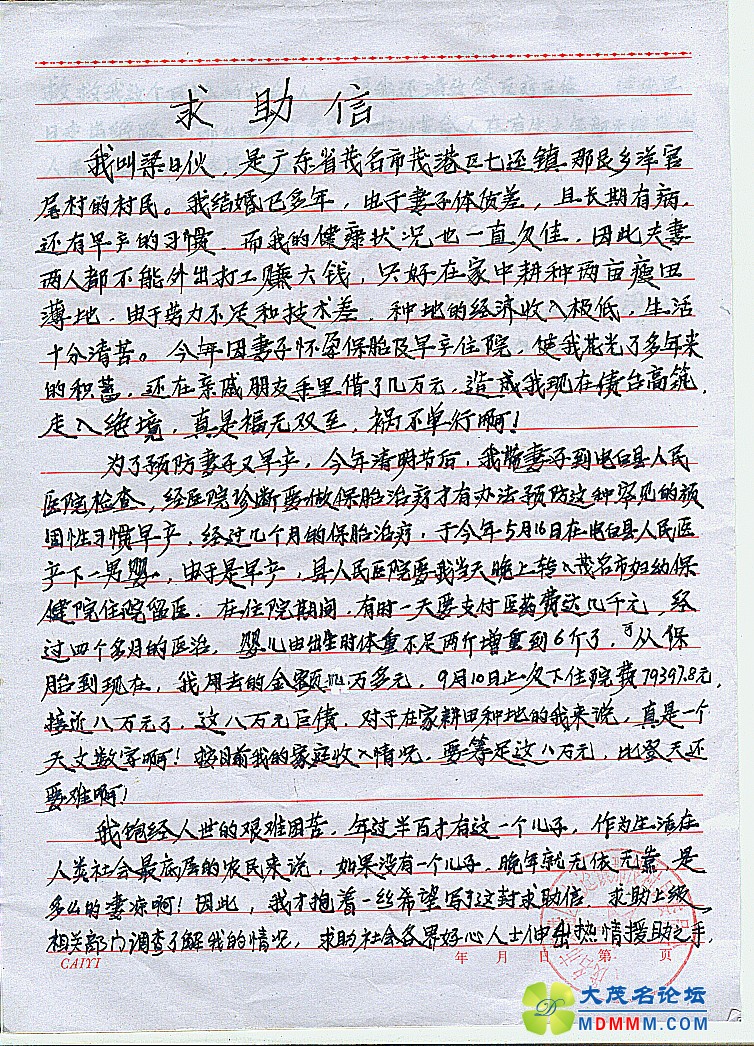 求助信
我叫梁日伙，是广东省茂名市茂港区七迳镇那良乡洋官
尾村的村民。我结婚已多年，由于妻子体质差，且长期有病，
还有早产的习惯，而我的健康状况也一直欠佳，因此夫妻
两人都不能外出打工赚大钱，只好在家中耕种两亩瘦田
薄地，由于劳力不足和技术差，种地的经济收入极低，生活
十分清苦。今年因妻子怀孕保胎及早产住院，使我花光了多年来
的积蓄，还在亲戚朋友手里借了几万元，造成我现在债台高筑，
走入绝境，真是福无双至，祸不单行啊！
为了预防妻子又早产，今年清明节后，我带妻子到电白县人民
医院检查，经医院诊断要做保胎治疗才有办法预防这种罕见的顽
固性习惯早产，经过几个月的保胎治疗，于今年5月16日在电白县人民医
产下一男婴，由于是早产，县人民医院要我当天晚上转入茂名市妇幼保
健院住院留医，在住院期间，有时一天要支付医药费达几千元，经
过四个多月的医治，婴儿由出生时体重不足两斤增重到6斤了，可从保
胎到现在，我用去的金额万多元，9月10日止欠下住院费79397.8元，
接近八万元了，这八万元巨债，对于在家耕田种地的我来说，真是一个
天文数字啊！按目前我的家庭收入情况，要筹足这八万元，比登天还
要难啊！
我饱经人世的艰难困苦，年过半百才有这一个儿子，作为生活在
人类社会最底层的农民来说，如果没有一个儿子，晚年就无依无靠，是
多么的凄凉啊！因此，我才抱着一丝希望写了这封求助信，求助上级
相关部门调查了解我的情况，求助社会各界好心人士伸出热情援助之手，
CAIYI 年 月 日 第 页
大茂名论坛
MDMMM.COM